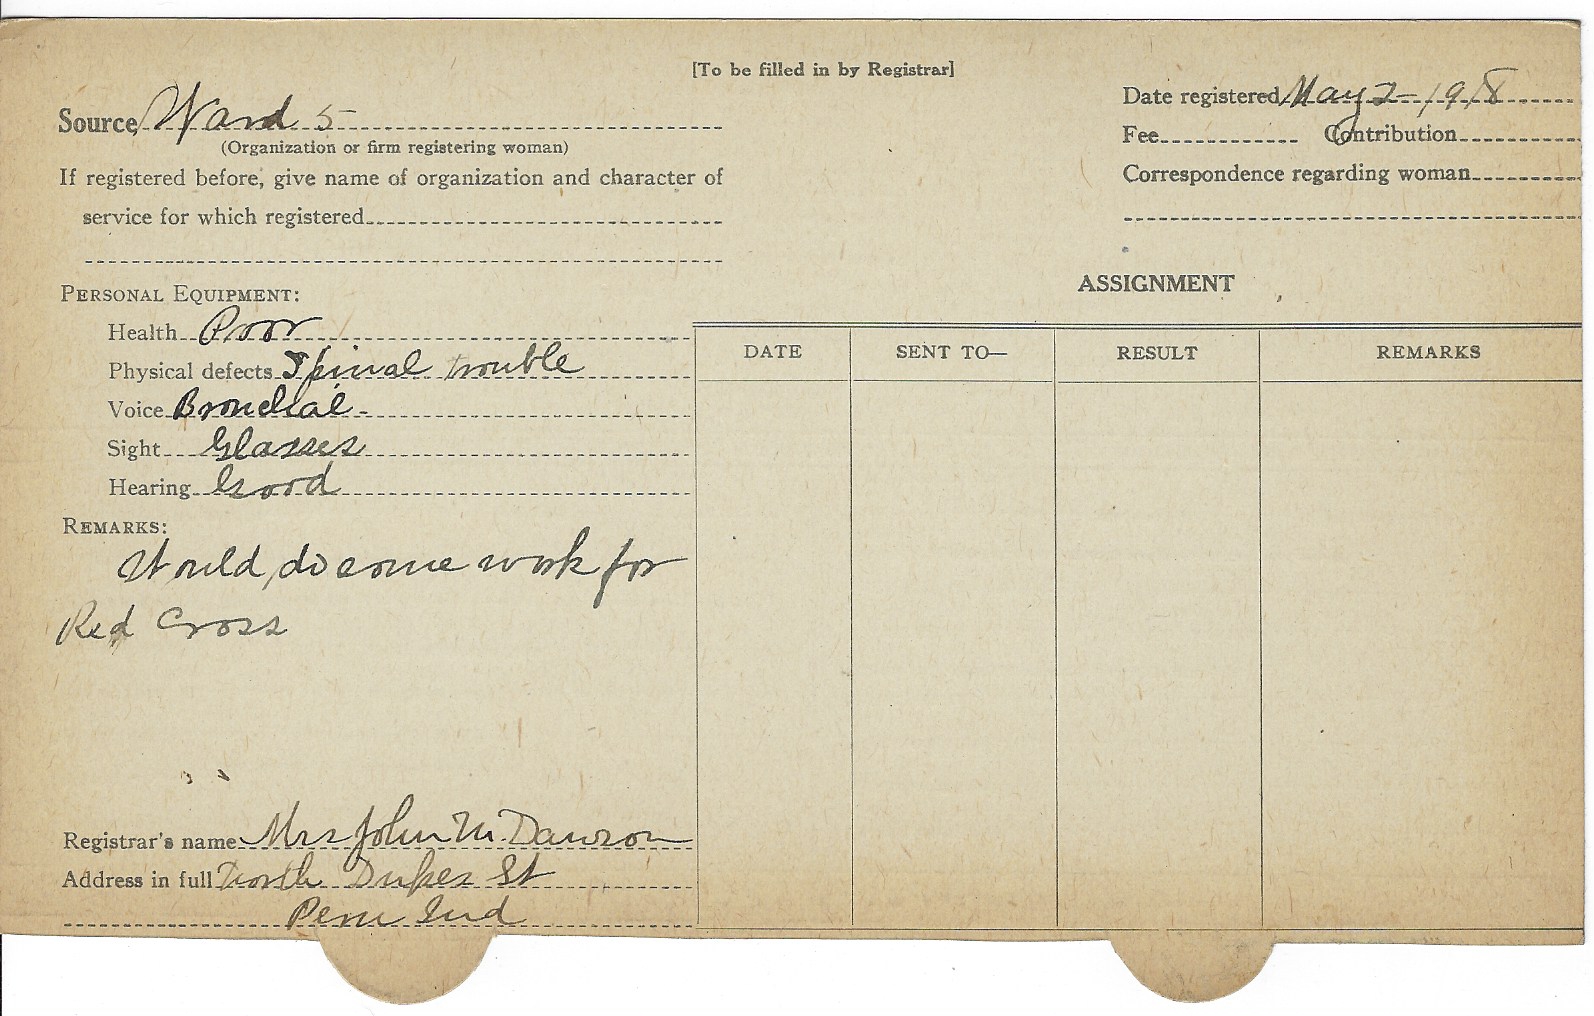 [To be filled in by Registrar]
Source Ward 5
(Organization or firm registering woman)
If registered before, give name of organization and character of
service for which registered
Date registered May 2 - 1918
Fee Contribution
Correspondence regarding woman
PERSONAL EQUIPMENT:
Health Poor
Physical defects Spinal trouble
Voice Bronchial -
Sight Glasses
Hearing Good
REMARKS:
Would do some work for
Red Cross
Registrar's name Mrs John M. Dawson
Address in full North Dukes St
Peru Ind
ASSIGNMENT
DATE SENT TO— RESULT REMARKS